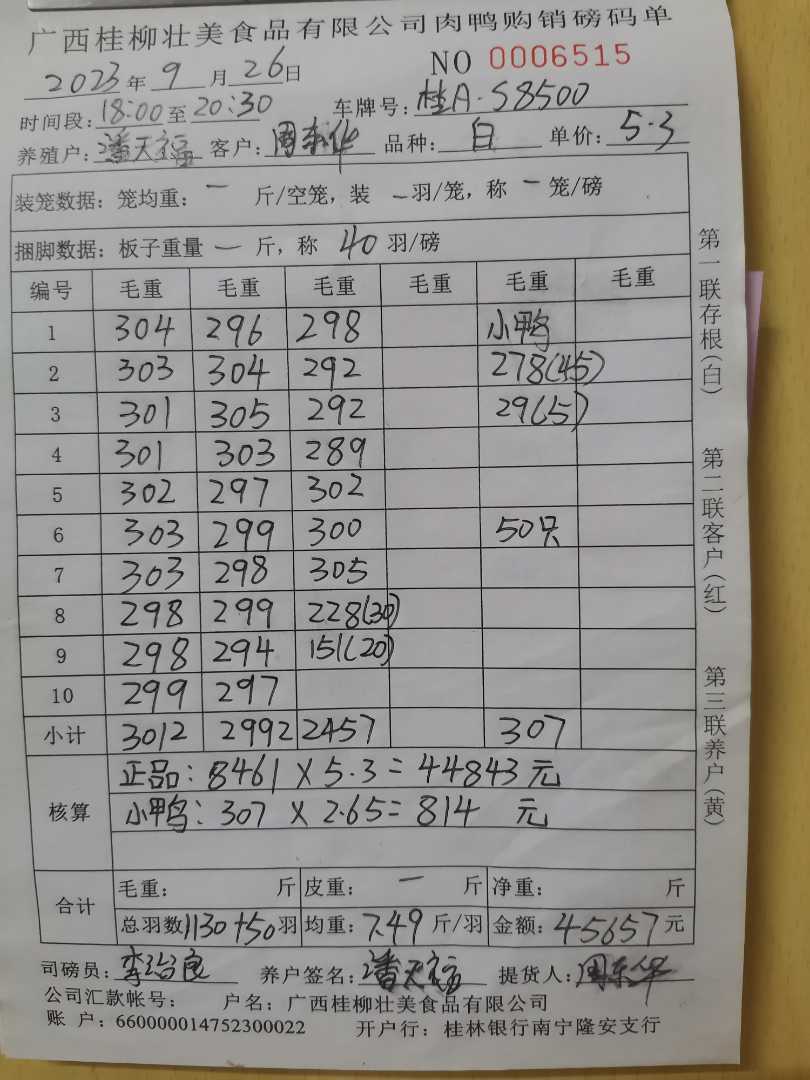 广西桂柳壮美食品有限公司肉鸭购销磅码单
2023年9月26日 NO 0006515
时间段：18:00至20:30 车牌号：桂A·S8500
养殖户：潘天福 客户：周东华 品种：白 单价：5.3
装笼数据：笼均重：一 斤/空笼，装 一羽/笼，称 一笼/磅
捆脚数据：板子重量 一 斤，称 40 羽/磅
编号 毛重 毛重 毛重 毛重 毛重
1 304 296 298 小鸭
2 303 304 292 278(45)
3 301 305 292 29(5)
4 301 303 289
5 302 297 302
6 303 299 300 50只
7 303 298 305
8 298 299 228(30)
9 298 294 151(20)
10 299 297
小计 3012 2992 2457 307
核算 正品：8461 X 5.3 = 44843 元
小鸭：307 X 2.65 = 814 元
合计 毛重： 斤 皮重： 一 斤 净重： 斤
总羽数1130+50羽 均重：7.49 斤/羽 金额：45657元
司磅员：李治良 养户签名：潘天福 提货人：周东华
公司汇款帐号： 户名：广西桂柳壮美食品有限公司
账 户：660000014752300022 开户行：桂林银行南宁隆安支行
第一联存根(白) 第二联客户(红) 第三联养户(黄)